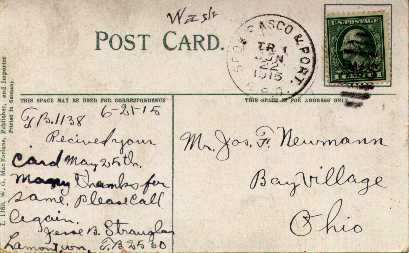 POST CARD.
ASCO & PORT.
TR. 1
JUN
22
1915
R.P.O.
U.S. POSTAGE
1 CENT 1
THIS SPACE MAY BE USED FOR CORRESPONDENCE
THIS SPACE IS FOR ADDRESS ONLY
T.B. 1138 6-21-15
Recived your
Card May 25th.
Many thanks for
same. Please call
again.
Jesse B. Straughan
Lamont, Wn. T.B 2530
Mr. Jos. F. Newmann
Bay Village
Ohio
W. G. MacFarlane, Publisher and Importer
Printed in Germany.